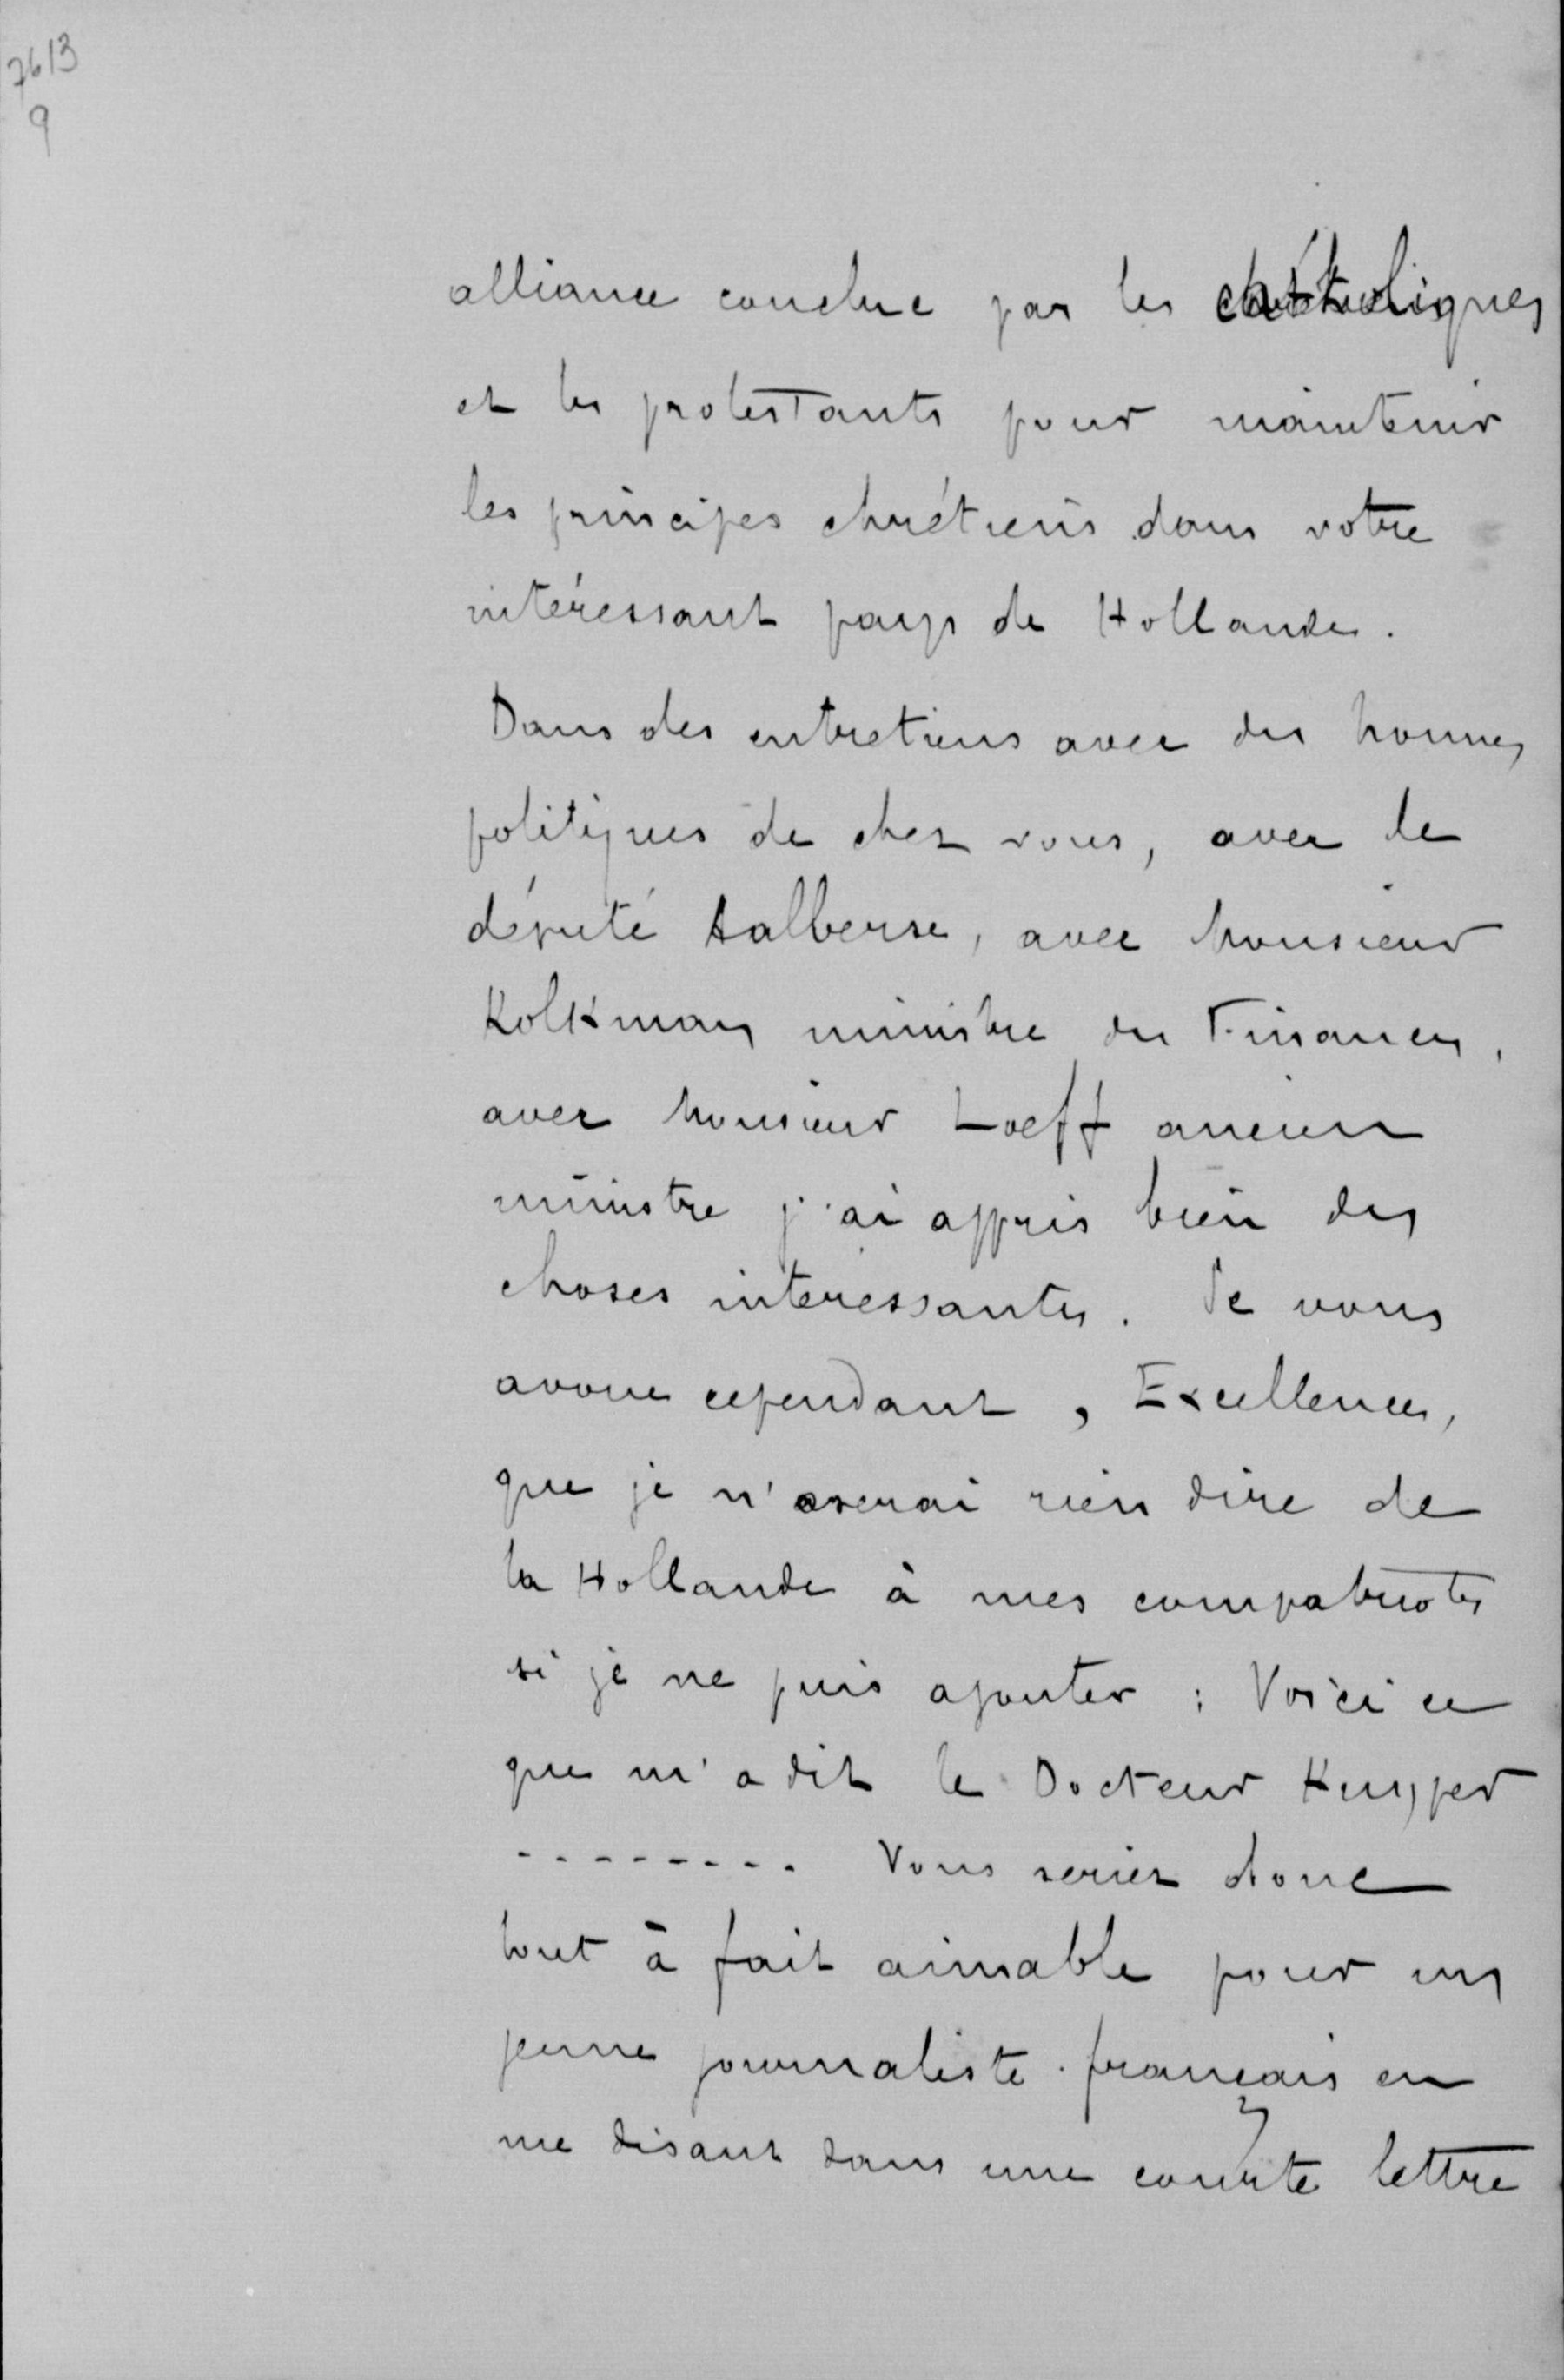 7613
9
alliance conclue par les catholiques
et les protestants pour maintenir
les principes chrétiens dans votre
intéressant pays de Hollande.
Dans des entretiens avec des hommes
politiques de chez vous, avec le
député Aalberse, avec Monsieur
Kolkman ministre des Finances,
avec Monsieur Loeff ancien
ministre j'ai appris bien des
choses interessantes. Je vous
avoue cependant, Excellence,
que je n'oserai rien dire de
la Hollande à mes compatriotes
si je ne puis ajouter : Voici ce
que m'a dit le Docteur Kuyper
--------. Vous seriez donc
tout à fait aimable pour un
jeune journaliste français en
me disant dans une courte lettre